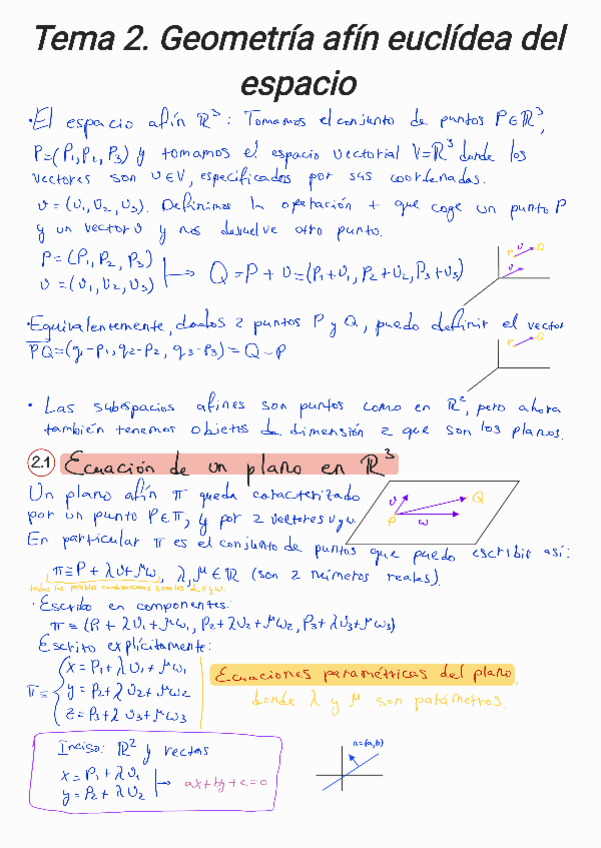 Tema 2. Geometría afín euclídea del
espacio
· El espacio afín ℝ³: Tomamos el conjunto de puntos P∈ℝ³,
P=(P₁,P₂,P₃) y tomamos el espacio vectorial V=ℝ³ donde los
vectores son v∈V, especificados por sus coordenadas.
v=(v₁,v₂,v₃). Definimos la operación + que coge un punto P
y un vector v y nos devuelve otro punto.
P=(P₁,P₂,P₃)
v=(v₁,v₂,v₃) ↦ Q=P+v=(P₁+v₁,P₂+v₂,P₃+v₃)
P v Q
v
· Equivalentemente, dados 2 puntos P y Q, puedo definir el vector
PQ=(q₁-p₁,q₂-p₂,q₃-p₃)=Q-P
P Q
· Las subespacios afines son puntos como en ℝ², pero ahora
también tenemos objetos de dimensión 2 que son los planos.
2.1 Ecuación de un plano en ℝ³
Un plano afín π queda caracterizado
por un punto P∈π, y por 2 vectores v y w.
v Q
P w
En particular π es el conjunto de puntos que puedo escribir así:
π≡P+λv+μw, λ,μ∈ℝ (son 2 números reales).
todas las posibles combinaciones lineales de v y w.
· Escribo en componentes:
π≡(P₁+λv₁+μw₁, P₂+λv₂+μw₂, P₃+λv₃+μw₃)
Escrito explícitamente:
π≡ { x=P₁+λv₁+μw₁
y=P₂+λv₂+μw₂
z=P₃+λv₃+μw₃
Ecuaciones paramétricas del plano,
donde λ y μ son parámetros.
Inciso: ℝ² y rectas
x=P₁+λv₁
y=P₂+λv₂ ↦ ax+by+c=0
n=(a,b)